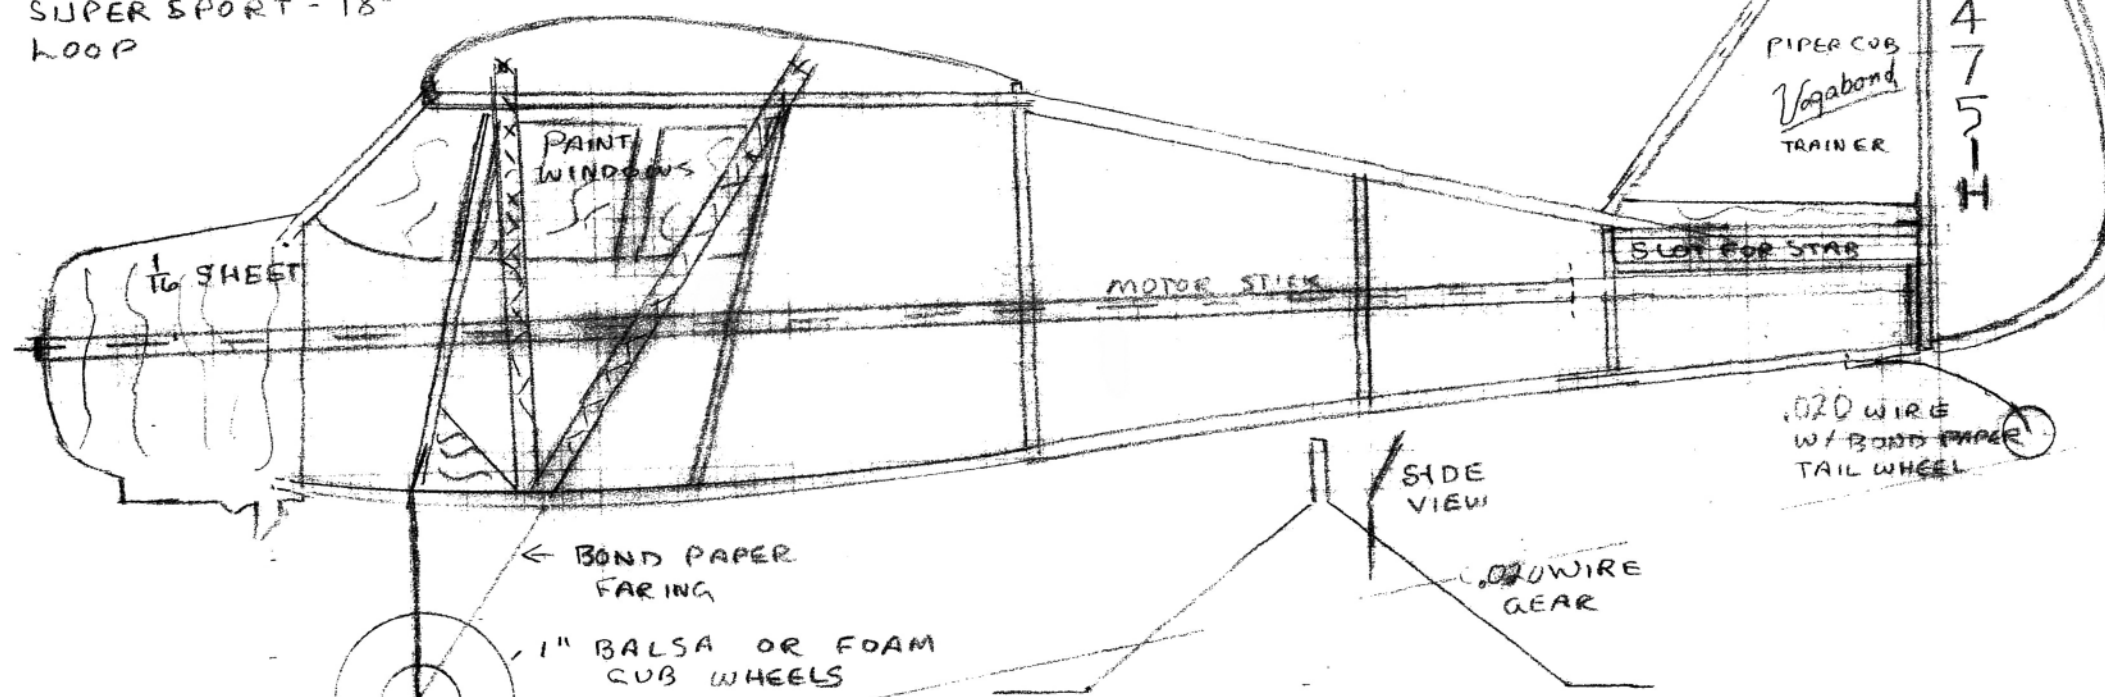 SUPER SPORT - 18"
LOOP
PIPER CUB
Vagabond
TRAINER
4
7
5
1
H
PAINT
WINDOWS
1/16 SHEET
SLOT FOR STAB
MOTOR STICK
.020 WIRE
W/ BOND PAPER
TAIL WHEEL
SIDE
VIEW
← BOND PAPER
FARING
.020 WIRE
GEAR
1" BALSA OR FOAM
CUB WHEELS